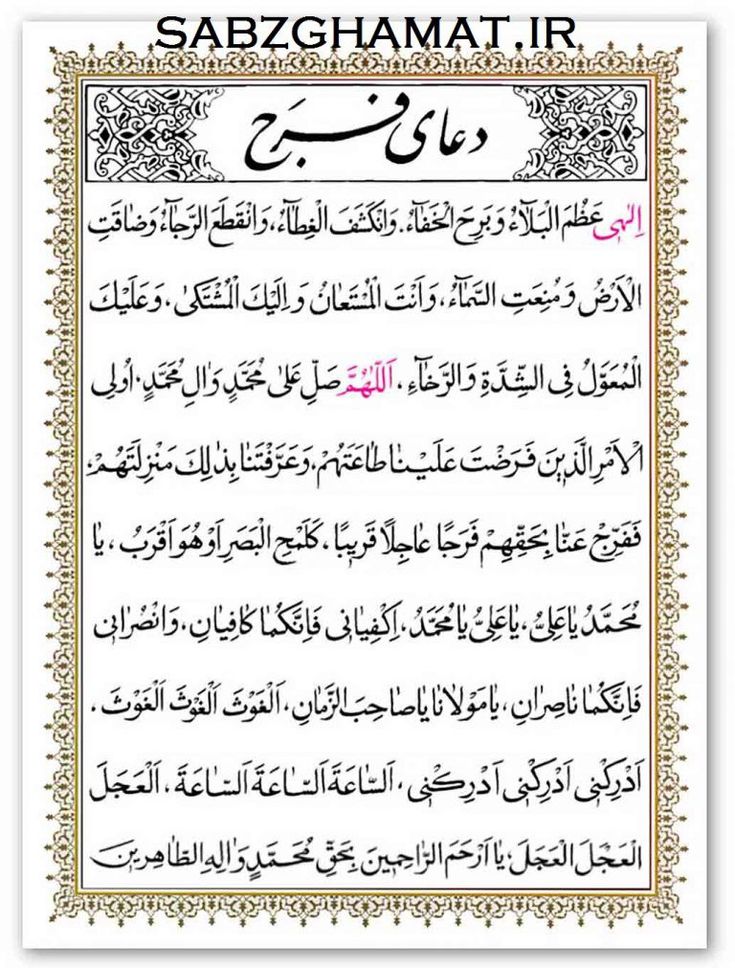 SABZGHAMAT.IR
دعای فرج
اِلٰهی عَظُمَ الْبَلٰٓاءُ وَ بَرِحَ الْخَفٰٓاءُ، وَانْكَشَفَ الْغِطٰٓاءُ، وَانْقَطَعَ الرَّجٰٓاءُ وَ ضٰاقَتِ
الْاَرْضُ وَ مُنِعَتِ السَّمٰٓاءُ، وَ اَنْتَ الْمُسْتَعٰانُ وَ اِلَیْكَ الْمُشْتَكیٰ، وَ عَلَیْكَ
الْمُعَوَّلُ فِی الشِّدَّةِ وَ الرَّخٰٓاءِ، اَللّٰهُمَّ صَلِّ عَلیٰ مُحَمَّدٍ وَ اٰلِ مُحَمَّدٍ، اُولِی
الْاَمْرِ الَّذٖینَ فَرَضْتَ عَلَیْنٰا طٰاعَتَهُمْ، وَ عَرَّفْتَنٰا بِذٰلِكَ مَنْزِلَتَهُمْ،
فَفَرِّجْ عَنّٰا بِحَقِّهِمْ فَرَجًا عٰاجِلًا قَرٖیبًا، كَلَمْحِ الْبَصَرِ اَوْ هُوَ اَقْرَبُ، یٰا
مُحَمَّدُ یٰا عَلِیُّ، یٰا عَلِیُّ یٰا مُحَمَّدُ، اِكْفِیٰانی فَاِنَّكُمٰا كٰافِیٰانِ، وَ انْصُرٰانی
فَاِنَّكُمٰا نٰاصِرٰانِ، یٰا مَوْلٰانٰا یٰا صٰاحِبَ الزَّمٰانِ، اَلْغَوْثَ اَلْغَوْثَ الْغَوْثَ،
اَدْرِكْنی اَدْرِكْنی اَدْرِكْنی، اَلسّٰاعَةَ اَلسّٰاعَةَ اَلسّٰاعَةَ، اَلْعَجَلَ
الْعَجَلَ الْعَجَلَ، یٰا اَرْحَمَ الرّٰاحِمٖینَ بِحَقِّ مُحَمَّدٍ وَ اٰلِهِ الطّٰاهِرٖینَ